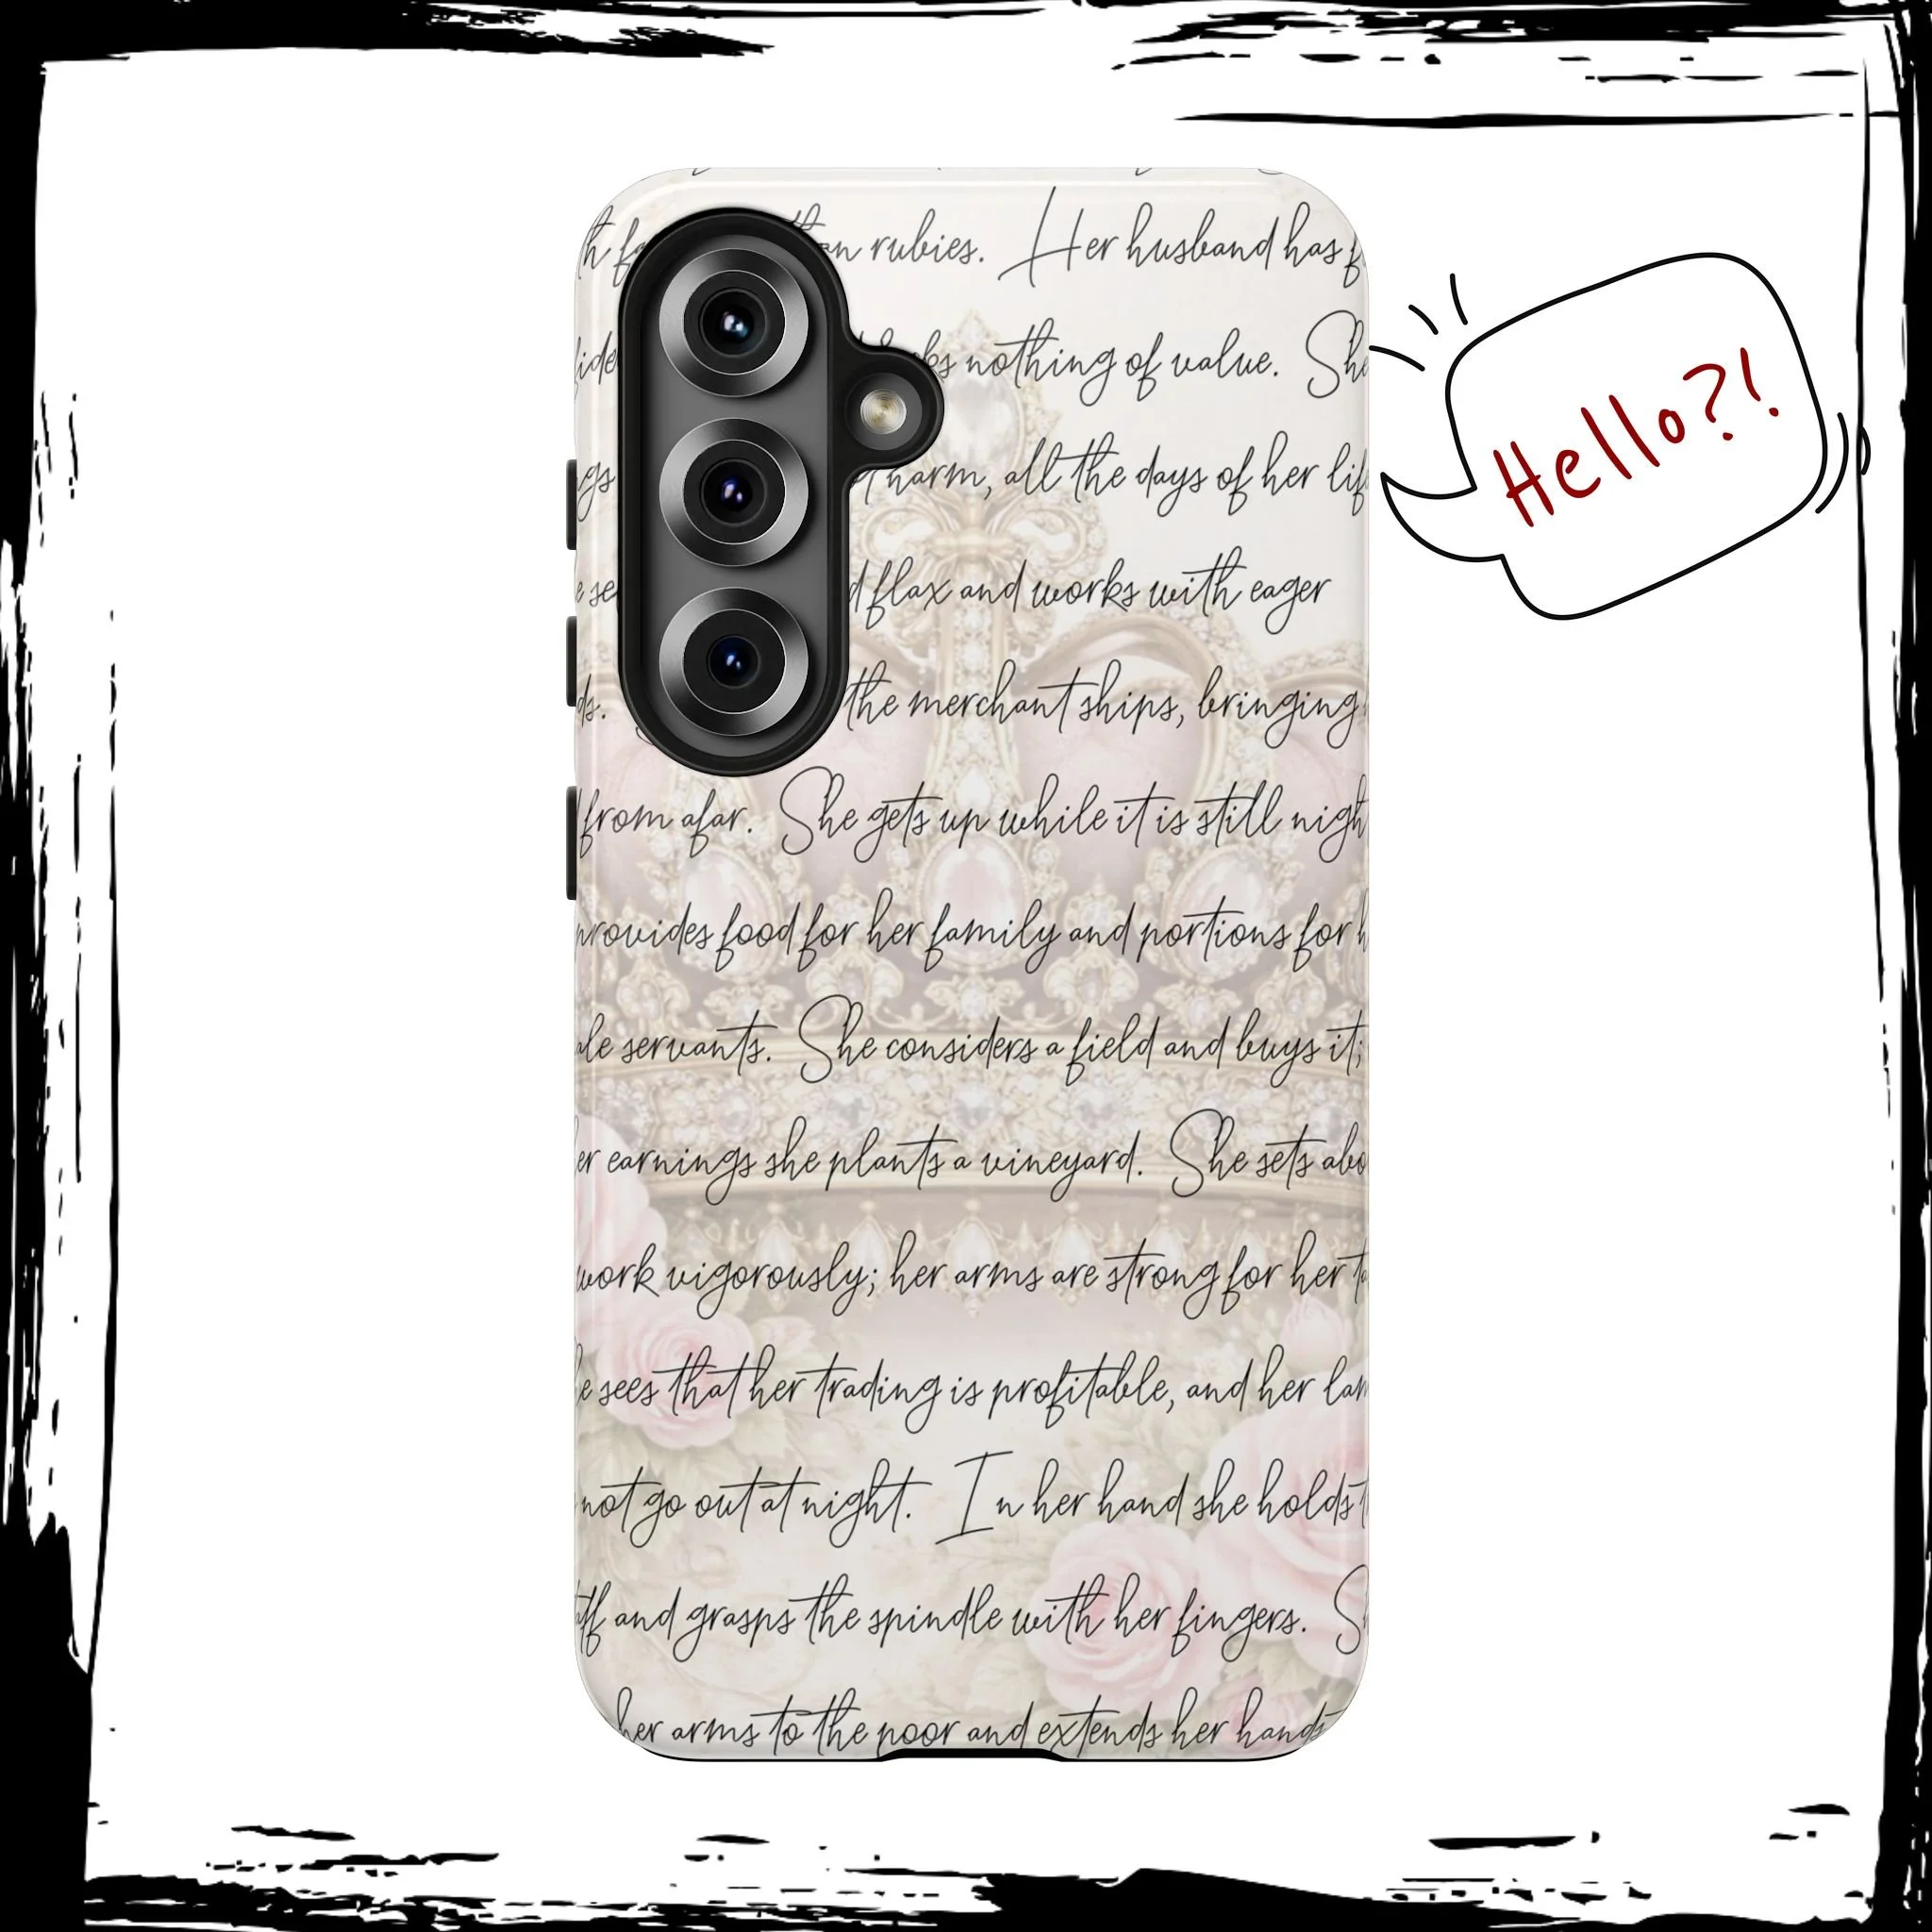 rubies. Her husband has
nothing of value. She
harm, all the days of her
flax and works with eager
the merchant ships, bringing
from afar. She gets up while it is still
provides food for her family and portions for
servants. She considers a field and buys it;
earnings she plants a vineyard. She sets
work vigorously; her arms are strong for her
sees that her trading is profitable, and her
not go out at night. In her hand she holds
and grasps the spindle with her fingers.
her arms to the poor and extends her hands
Hello?!